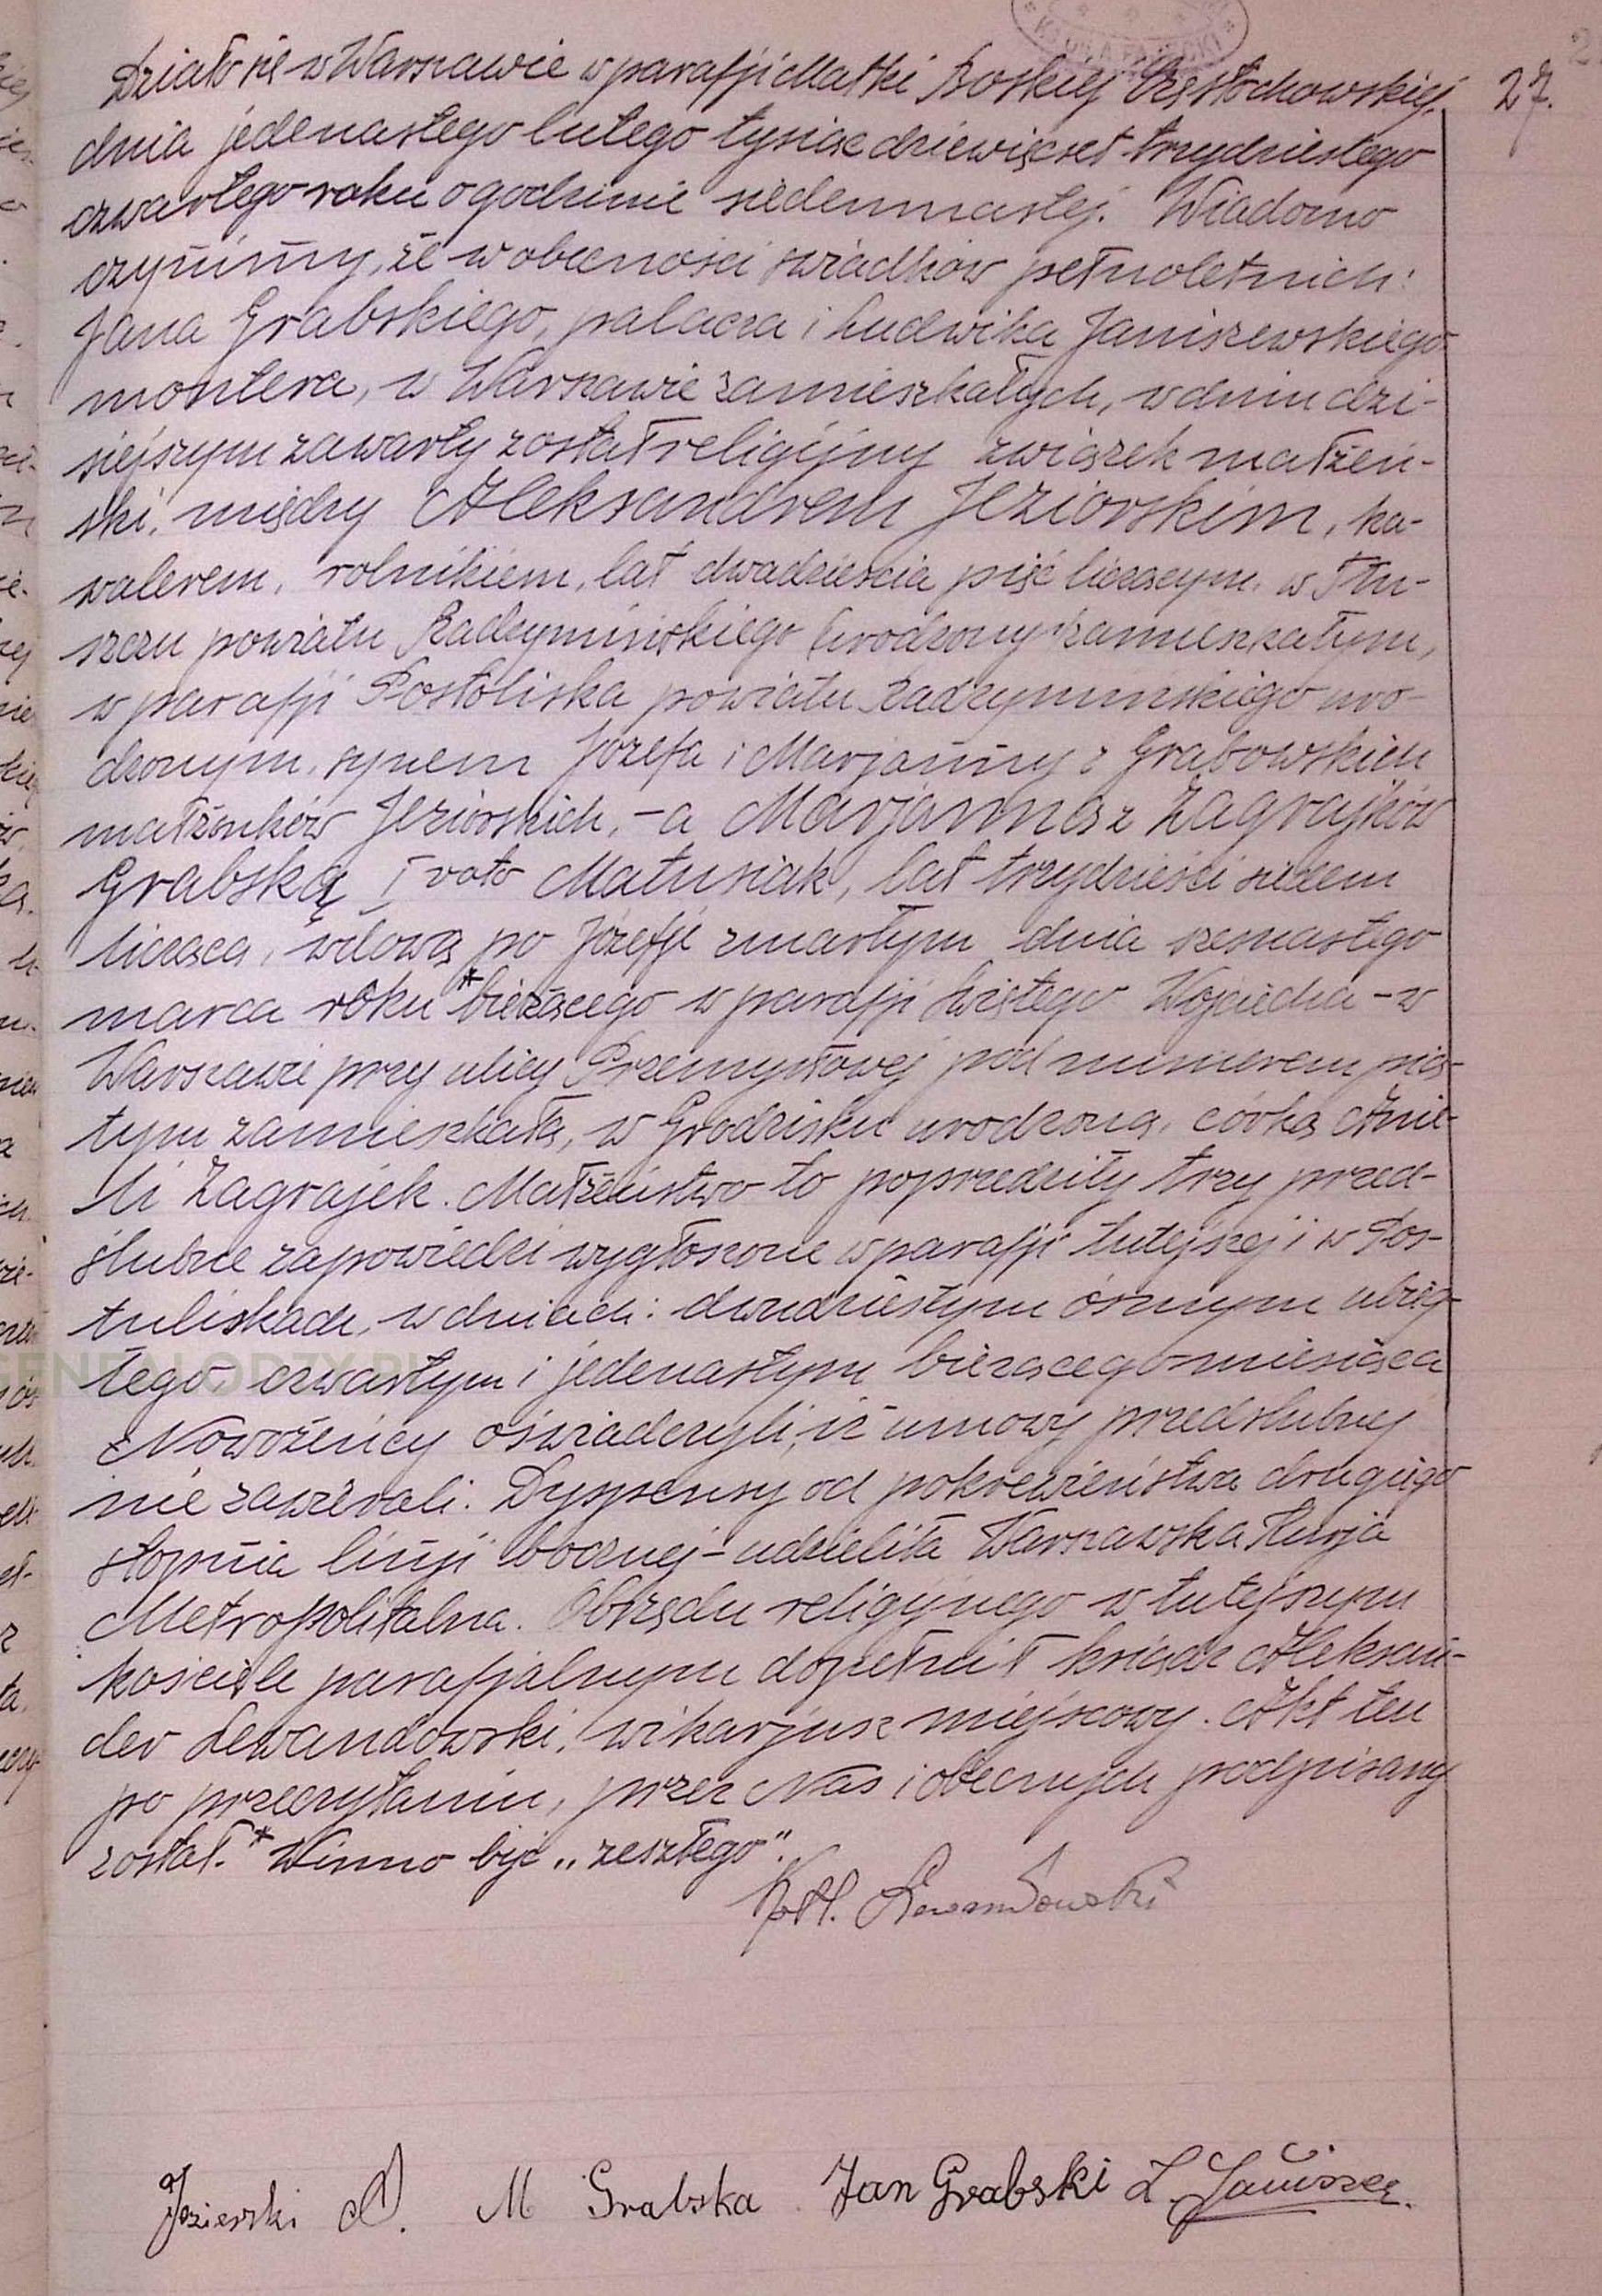 27.
Działo się w Warszawie w parafji Matki Boskiej Częstochowskiej,
dnia jedenastego lutego tysiąc dziewięćset trzydziestego
czwartego roku o godzinie siedemnastej. Wiadomo
czynimy, że w obecności świadków pełnoletnich:
Jana Grabskiego, palacza i Ludwika Janiszewskiego
montera, w Warszawie zamieszkałych, w dniu dzi-
siejszym zawarty został religijny związek małżeń-
ski, między Aleksandrem Jeziorskim, ka-
walerem, rolnikiem, lat dwadzieścia pięć liczącym, w Tłu-
szczu powiatu Radzymińskiego zamieszkałym,
w parafji Postoliska powiatu Radzymińskiego uro-
dzonym, synem Józefa i Marjanny z Grabowskich
małżonków Jeziorskich, - a Marjanną z Zagrajków
Grabską I voto Matusiak, lat trzydzieści siedem
liczącą, wdową po Józefie zmarłym dnia szesnastego
marca roku * bieżącego w parafji świętego Wojciecha - w
Warszawie przy ulicy Przemysłowej pod numerem pią-
tym zamieszkałą, w Grodzisku urodzoną, córką Anie-
li Zagrajek. Małżeństwo to poprzedziły trzy przed-
ślubne zapowiedzi wygłoszone w parafji tutejszej i w Pos-
tuliskach, w dniach: dwudziestym ósmym ubieg-
łego, czwartym i jedenastym bieżącego miesiąca
Nowożeńcy oświadczyli, iż umowy przedślubnej
nie zawierali. Dyspensy od pokrewieństwa drugiego
stopnia linji bocznej - udzieliła Warszawska Kurja
Metropolitalna. Obrzędu religijnego w tutejszym
kościele parafjalnym dopełnił ksiądz Aleksan-
der Lewandowski, wikarjusz miejscowy. Akt ten
po przeczytaniu, przez Nas i obecnych podpisany
został. * Winno być „zeszłego".
Lewandowski
Jezierski A. M Grabska Jan Grabski L. Janiszew.